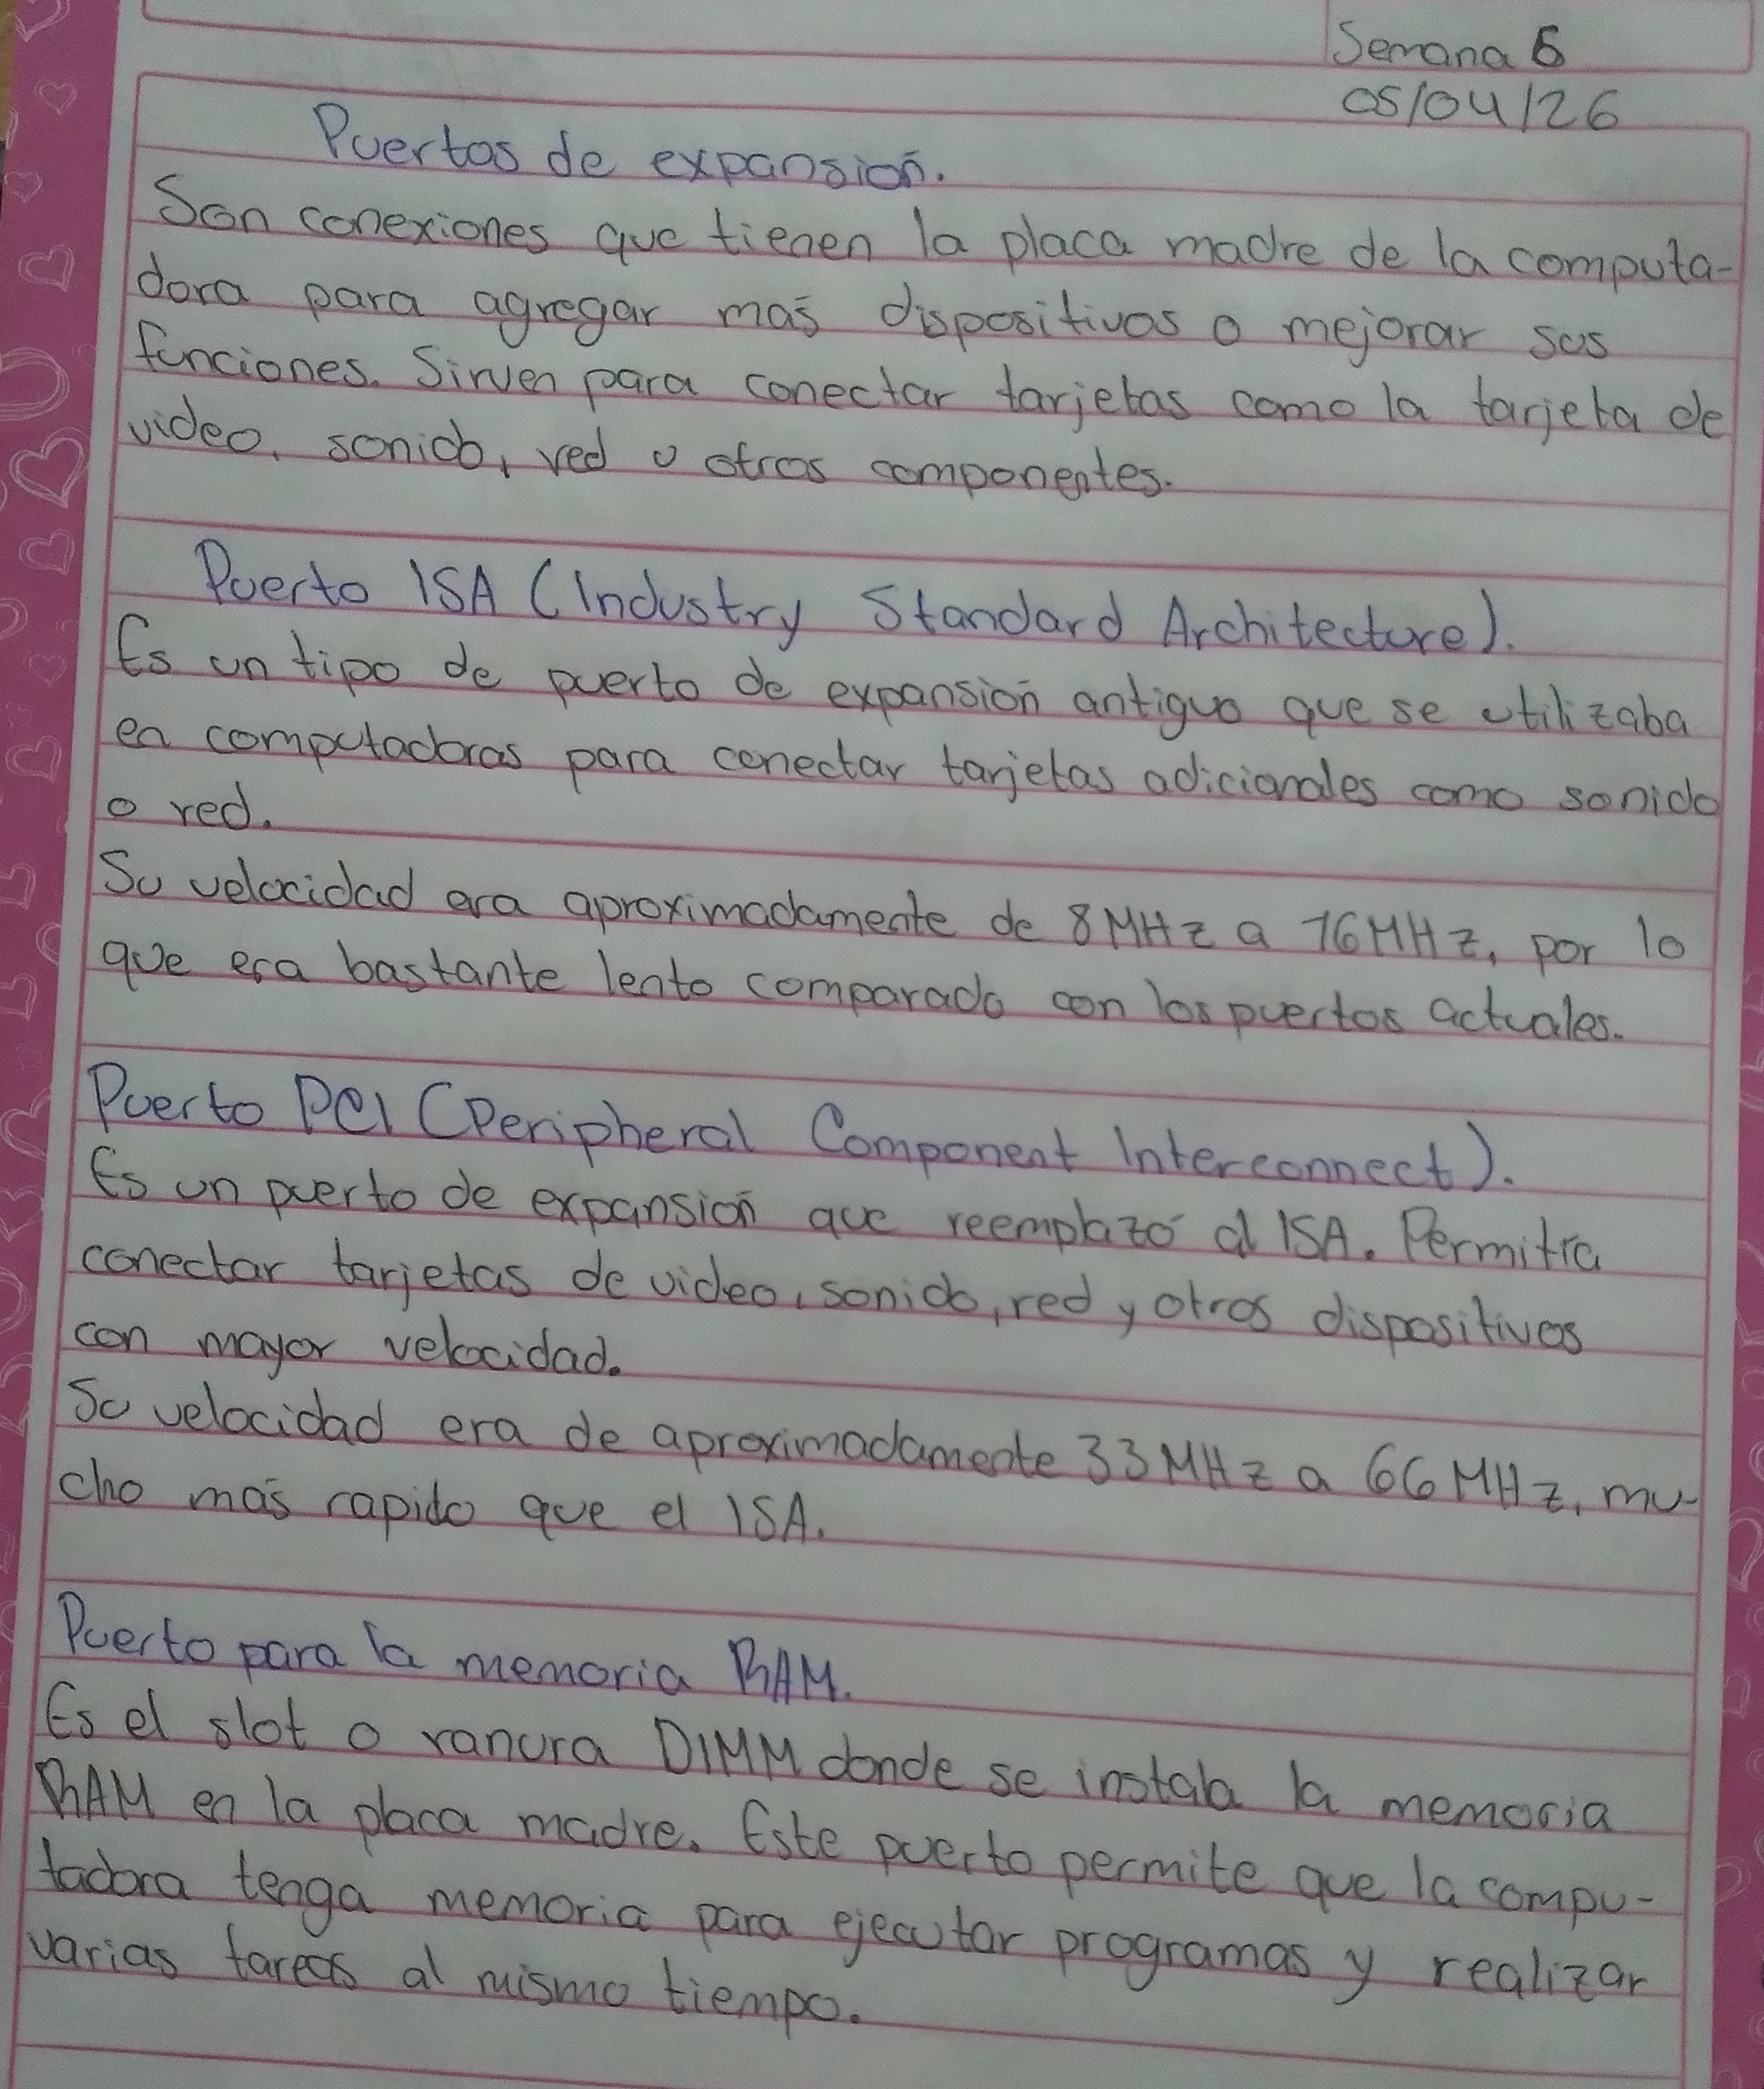 Semana 6
05/04/26
Puertos de expansión.
Son conexiones que tienen la placa madre de la computa-
dora para agregar más dispositivos o mejorar sus
funciones. Sirven para conectar tarjetas como la tarjeta de
video, sonido, red u otros componentes.
Puerto ISA (Industry Standard Architecture).
Es un tipo de puerto de expansión antiguo que se utilizaba
en computadoras para conectar tarjetas adicionales como sonido
o red.
Su velocidad era aproximadamente de 8MHz a 16MHz, por lo
que era bastante lento comparado con los puertos actuales.
Puerto PCI (Peripheral Component Interconnect).
Es un puerto de expansión que reemplazó al ISA. Permitía
conectar tarjetas de video, sonido, red y otros dispositivos
con mayor velocidad.
Su velocidad era de aproximadamente 33MHz a 66MHz, mu-
cho más rapido que el ISA.
Puerto para la memoria RAM.
Es el slot o ranura DIMM donde se instala la memoria
RAM en la placa madre. Este puerto permite que la compu-
tadora tenga memoria para ejecutar programas y realizar
varias tareas al mismo tiempo.